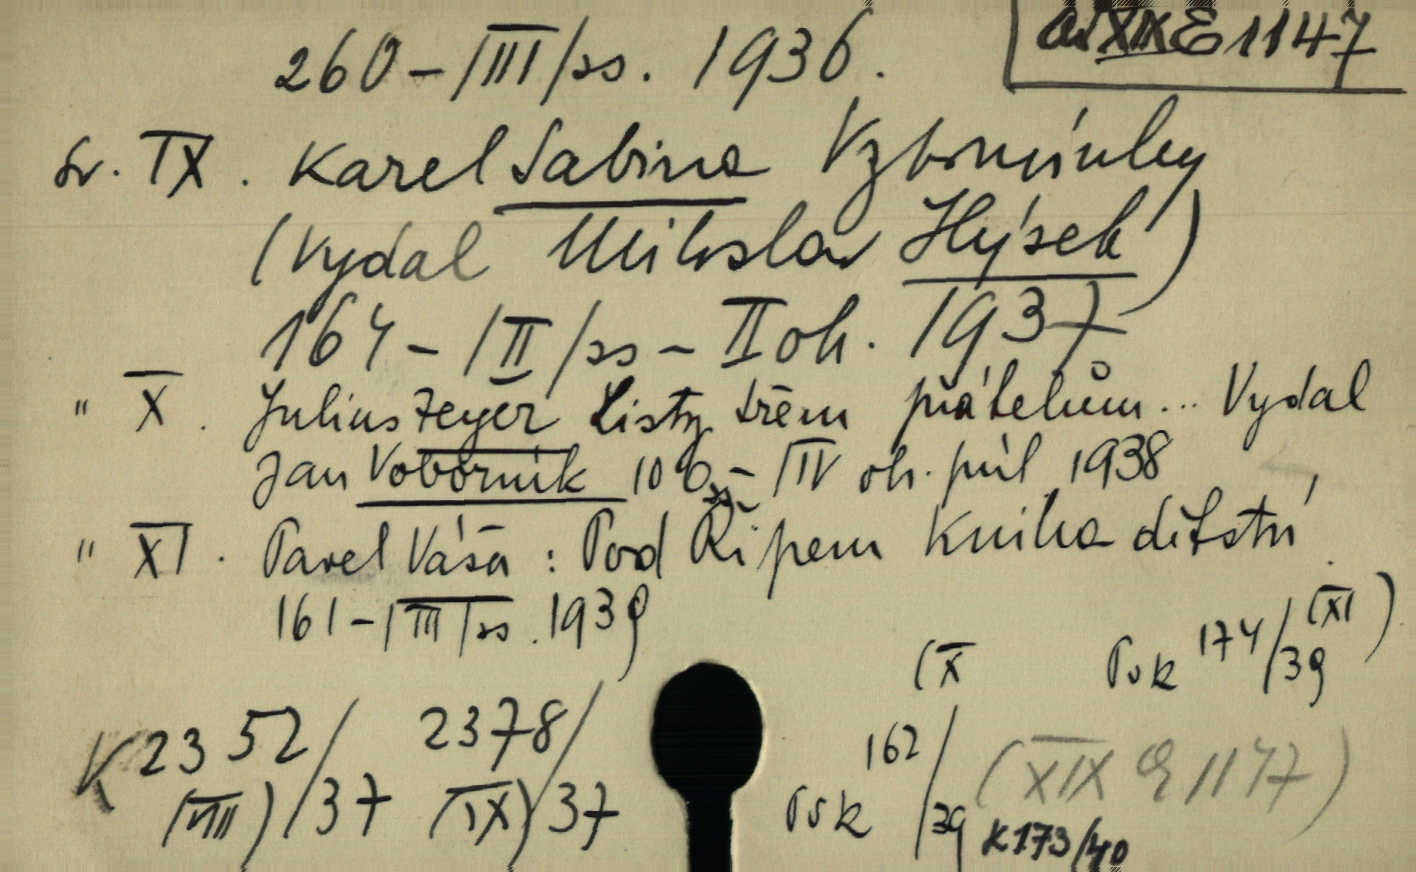 XIX E 1147
260 - |III|ss. 1936.
Sv. IX. Karel Sabina Vzpomínky
(vydal Miloslav Hýsek)
164 - |II|ss - II ob. 1937
" X. Julius Zeyer Listy třem přátelům... Vydal
Jan Voborník 106 - |IV ob. příl 1938
" XI. Pavel Váša: Pod Řípem Kniha dětství
161 - |III|ss. 1939
(X Psk 174/39 (XI)
K 2352/37 (VIII) 2378/37 (IX)
Psk 162/39 (XIX E 1147)
K173/40